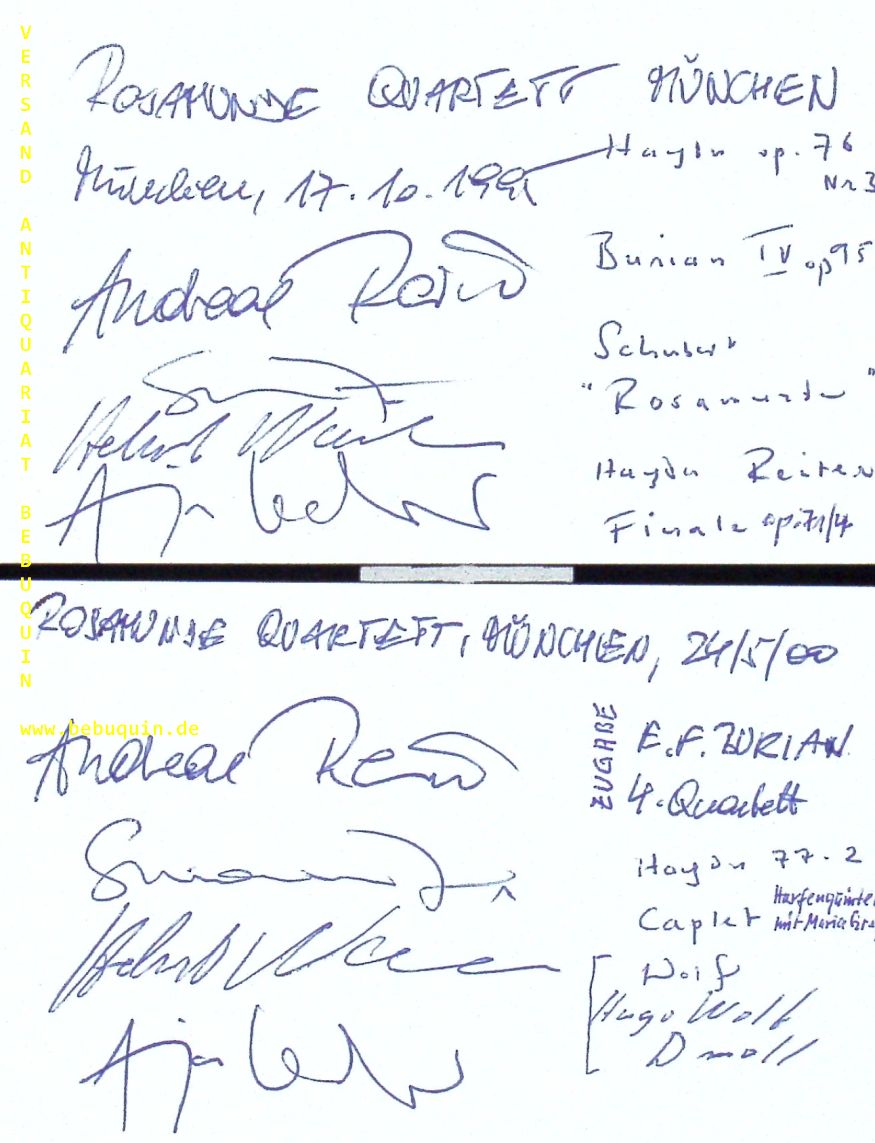 VERSAND ANTIQUARIAT BEBUQUIN
www.bebuquin.de
ROSAMUNDE QUARTETT MÜNCHEN
München, 17.10.199
Haydn op. 76
Nr 3
Burian IV op 95
Schubert
"Rosamunde"
Haydn Reiter
Finale op. 71/4
Andreas Reiner
Helmut
Anja Lechner
ROSAMUNDE QUARTETT, MÜNCHEN, 24/5/00
Andreas Reiner
Simon
Helmut
Anja Lechner
ZUGABE
E.F. BURIAN
4. Quartett
Haydn 77.2
Caplet Harfenquinte
mit Maria Gra
Wolf
Hugo Wolf
D moll